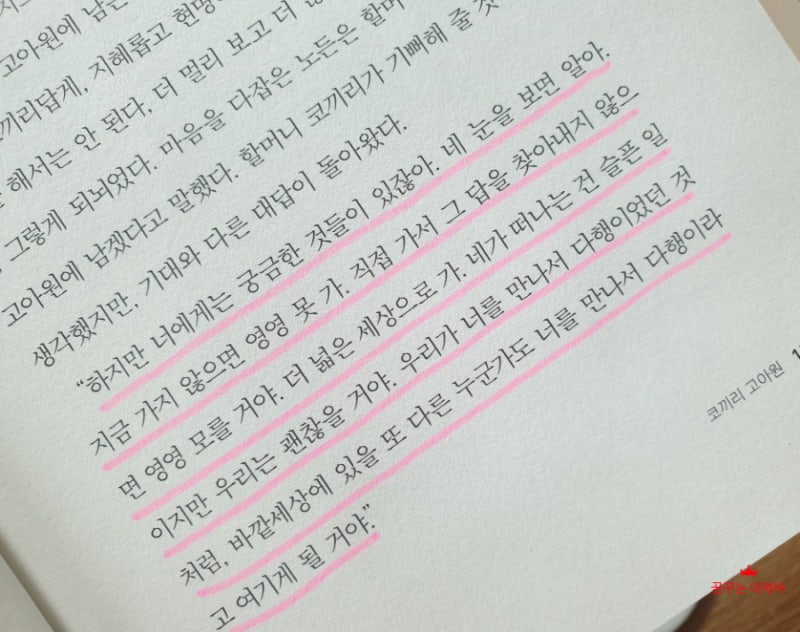 고아원에 남은
코끼리답게, 지혜롭고 현명
해서는 안 된다. 더 멀리 보고 더
그렇게 되뇌었다. 마음을 다잡은 노든은 할머
고아원에 남겠다고 말했다. 할머니 코끼리가 기뻐해 줄 것
생각했지만, 기대와 다른 대답이 돌아왔다.
“하지만 너에게는 궁금한 것들이 있잖아. 네 눈을 보면 알아.
지금 가지 않으면 영영 못 가. 직접 가서 그 답을 찾아내지 않으
면 영영 모를 거야. 더 넓은 세상으로 가. 네가 떠나는 건 슬픈 일
이지만 우리는 괜찮을 거야. 우리가 너를 만나서 다행이었던 것
처럼, 바깥세상에 있을 또 다른 누군가도 너를 만나서 다행이라
고 여기게 될 거야.”
코끼리 고아원